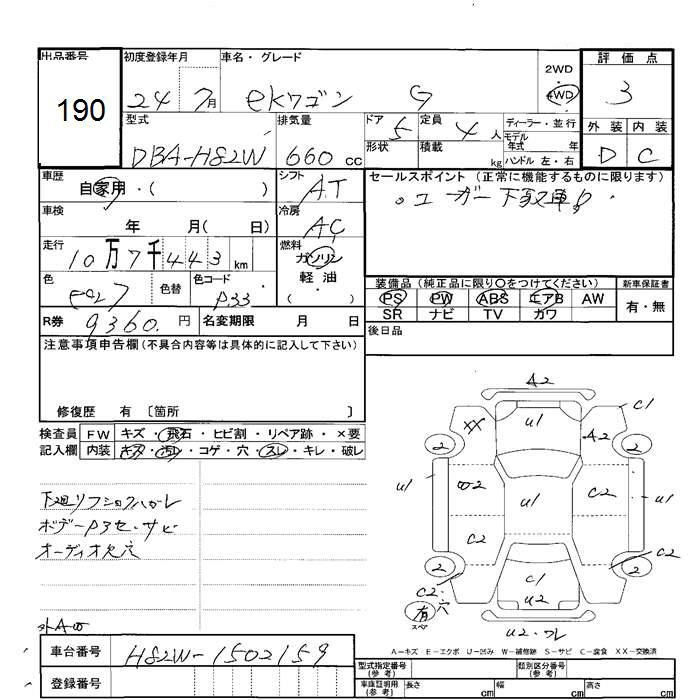 出品番号 190
初度登録年月 24 7月
車名・グレード ekワゴン G
2WD 4WD
評価点 3
外装 D 内装 C
型式 DBA-H82W
排気量 660 cc
ドア 5
定員 4 人
形状 積載 kg
ディーラー・並行
モデル年式 年
ハンドル 左・右
車歴 自家用・( )
シフト AT
セールスポイント (正常に機能するものに限ります)
車検 年 月( 日)
冷房 AC
走行 10万7千443 km
燃料 ガソリン 軽油 ( )
色 色替
色コード P33
装備品 (純正品に限り〇をつけてください)
新車保証書
PS PW ABS エアB AW
SR ナビ TV カワ
有・無
R券 9360. 円
名変期限 月 日
後日品
注意事項申告欄 (不具合内容等は具体的に記入して下さい)
修復歴 有 〔箇所 〕
検査員記入欄
FW キズ・飛石・ヒビ割・リペア跡・×要
内装 キズ・汚レ・コゲ・穴・スレ・キレ・破レ
ボデー
サビ
オーディオ欠穴
A2
U1
C1
XX
A2
2
2
U1
C2
U1
U1
C2
C2
2
2
C1
U2
C2・穴
有
スペア
U2・ワレ
A-キズ E-エクボ U-凹み W-補修跡 S-サビ C-腐食 XX-交換済
車台番号 H82W-1502159
登録番号
型式指定番号 (参考)
類別区分番号 (参考)
車庫証明用 (参考) 長さ cm 幅 cm 高さ cm